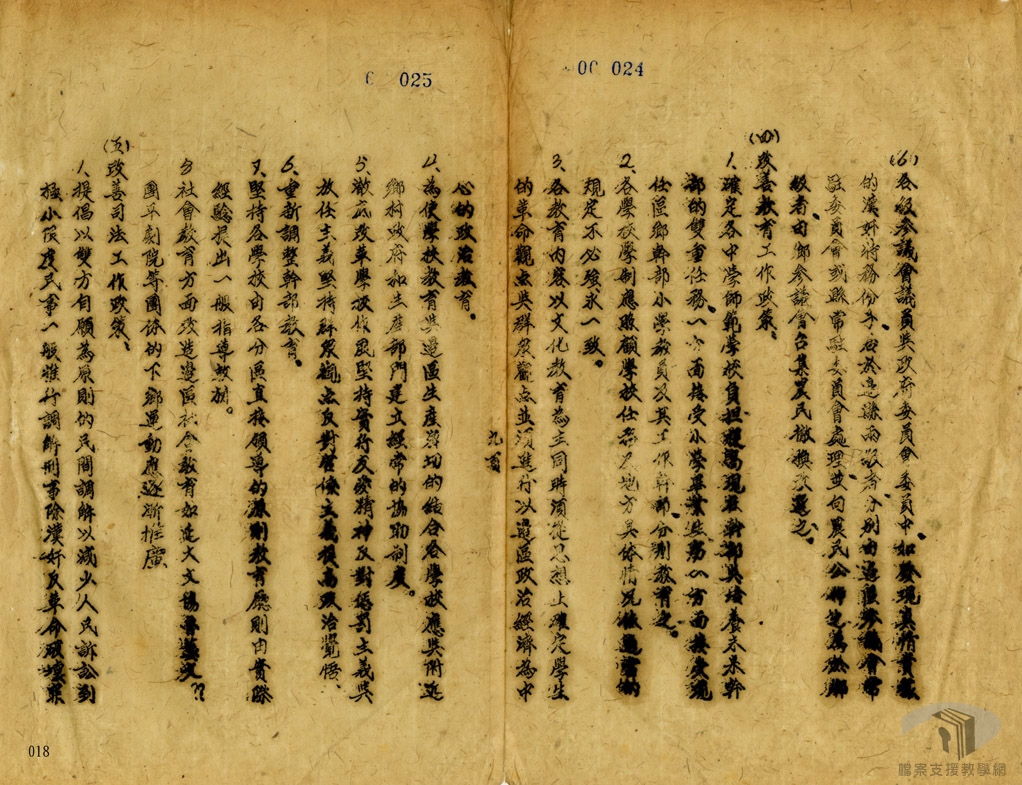 00 024
(6)各級參議會議員與政府委員會委員中如發現真情實據
的漢奸特務份子右於邊縣兩級者分別由邊區參議會常
駐委員會或縣常駐委員會處理並向農民公佈之為於鄉
級者由鄉參議會召集農民撤換改選之。
(四)改善教育工作政策、
1、確定各中學師範學校負担提高現在幹部與培養未來幹
部的雙重任務、一方面接受小學畢業生另一方面接受現
任區鄉幹部小學教員及其工作幹部、分別教育之。
2、各學校學制應照顧學校任務及地方具体情況
規定不必強求一致。
3、各教育內容以文化教育為主同時須從思想上確定學生
的革命觀点與群眾觀点並須進行以邊區政治經濟為中
九頁
6 025
心的政治教育。
4、為使學校教育與邊區生產密切的結合各學校應與附近
鄉村政府和生產部門建立經常的協助制度。
5、澈底改革學校作風堅持實行反省精神反對懲罰主義與
放任主義堅持群眾觀点反對 主義提高政治覺悟、
6、重新調整幹部教育。
7、堅持各學校由各分區直接領導的原則教育廳則由實際
經驗提出一般指導教材。
8 社會教育方面改造邊區社會教育如延大文協魯藝文??
團平劇院等團体的下鄉運動應逐漸推廣
(五)改善司法工作政策、
1、提倡以雙方自願為原則的民間調解以減少人民訴訟到
極小限度民事一般推行調解刑事除漢奸反革命破壞
018
檔案支援教學網